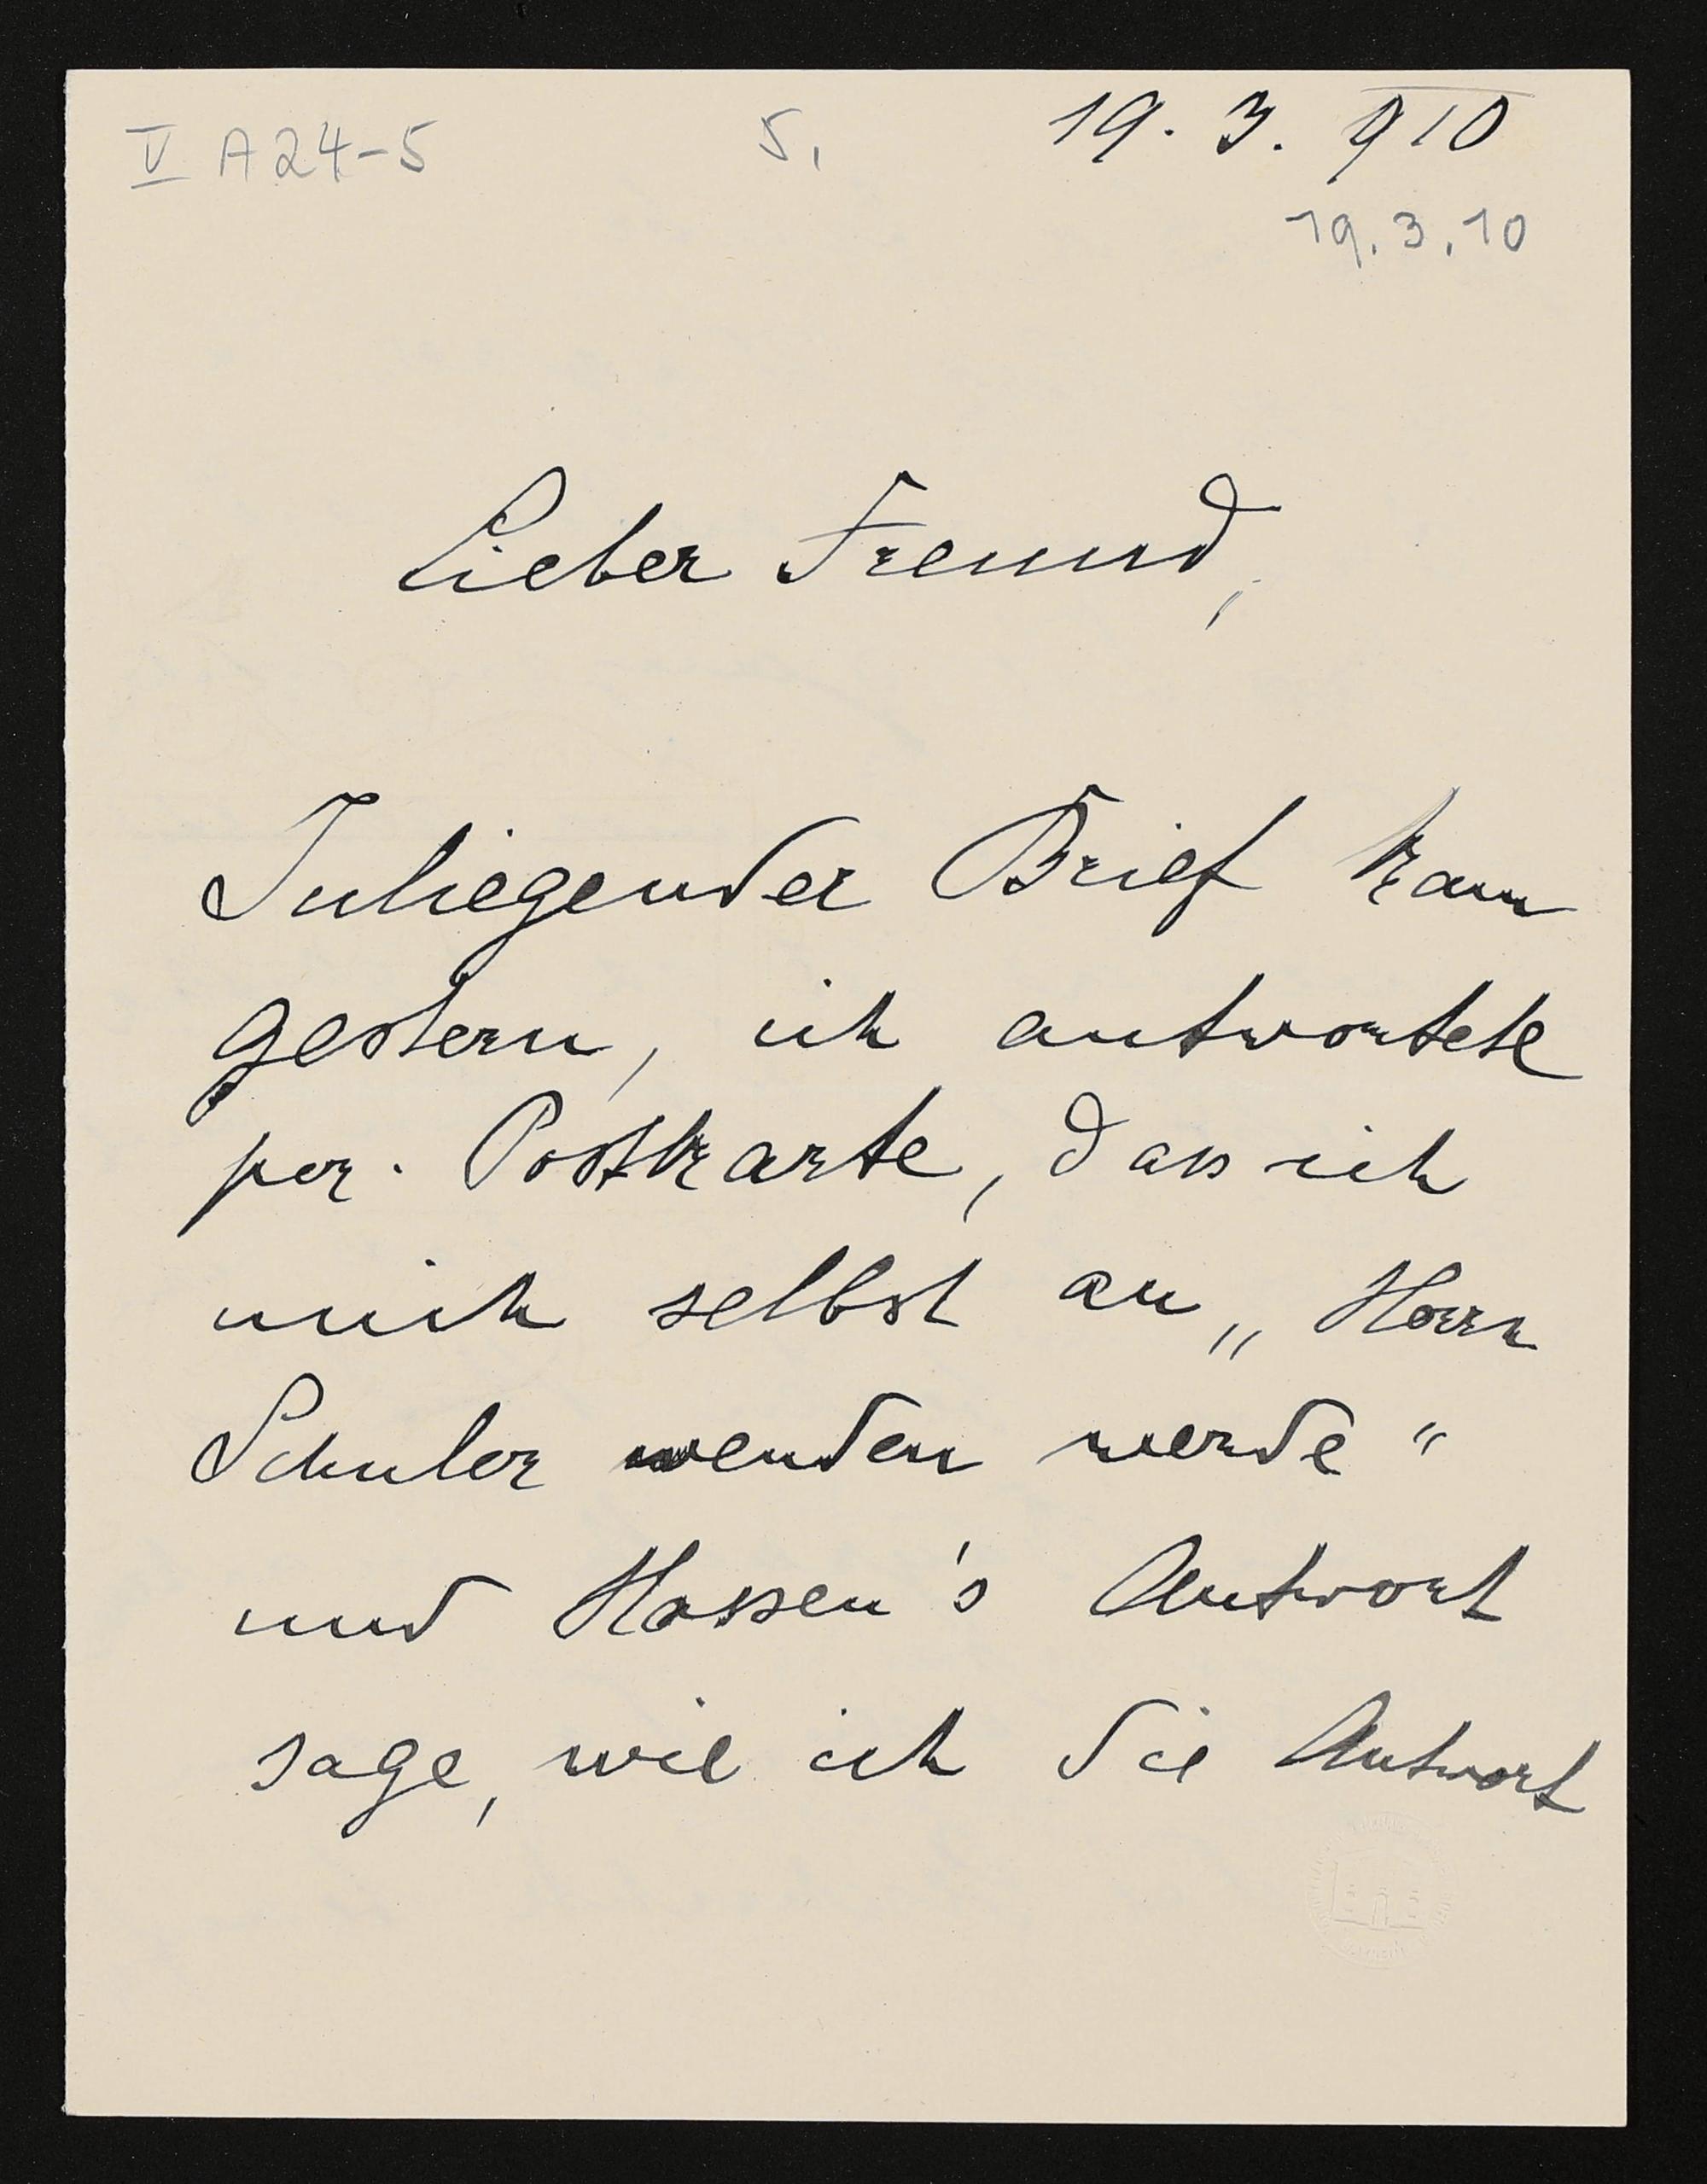 V A24-5 5. 19. 3. 910
19.3.10
Lieber Freund,
Inliegender Brief kam
gestern, ich antwortete
per. Postkarte, dass ich
mich selbst an „Herrn
Schuler wenden werde“
und Hassen's Antwort
sage, wie ich die Antwort